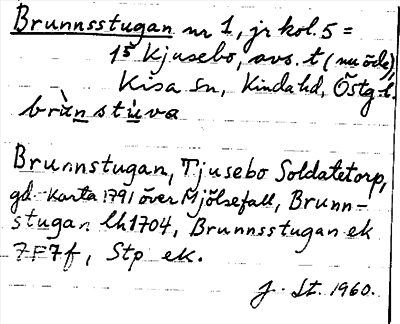 Brunnsstugan nr 1, jr kol. 5 =
15 Kjusebo, avs. t (nu öde),
Kisa sn, Kinda hd, Östg. l.
brùnstùva
Brunnstugan, Tjusebo Soldatetorp,
gd Karta 1791 över Mjölsefall, Brunn-
stugan lh 1704, Brunnsstugan ek
7F7f, Stp ek.
J. St. 1960.